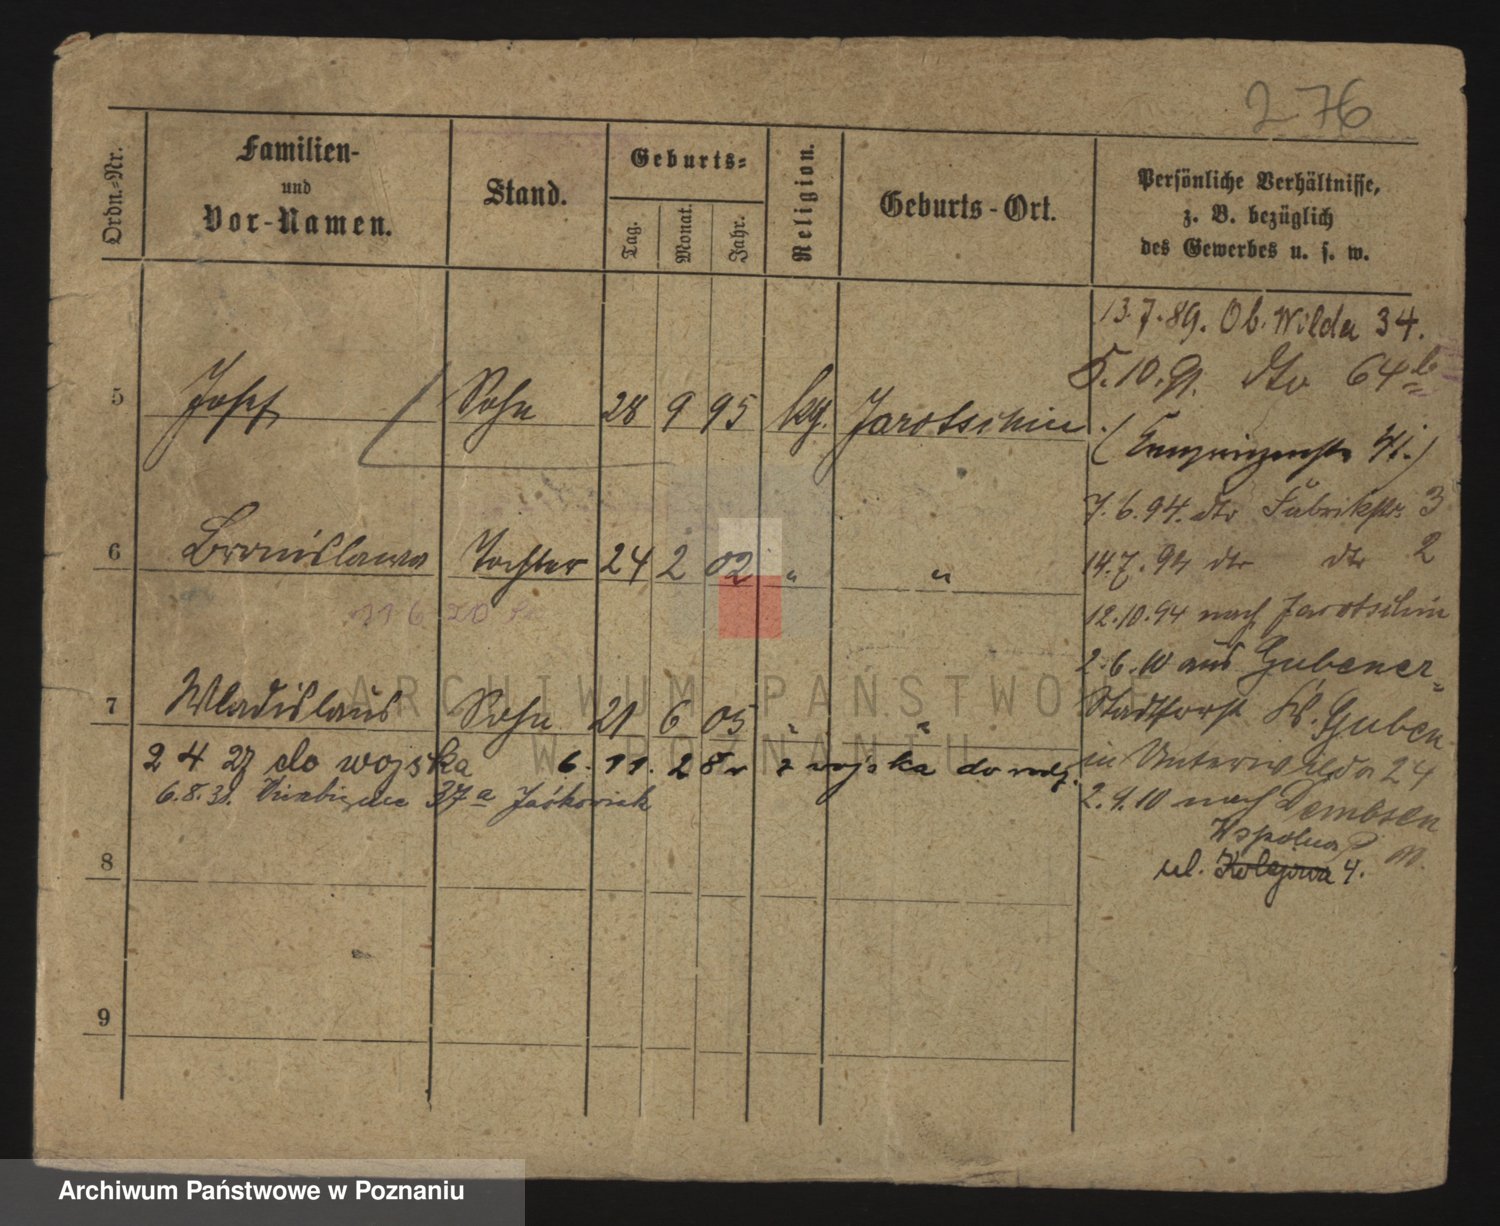 276
Ordn.-Nr.
Familien-
und
Vor-Namen.
Stand.
Geburts-
Tag.
Monat.
Jahr.
Religion.
Geburts-Ort.
Persönliche Verhältnisse,
z. B. bezüglich
des Gewerbes u. s. w.
13.7.89. Ob. Wilda 34.
5.10.91. dto 64b
5 Josef Sohn 28 9 95 kg. Jarotschin
7.6.94. dto Fabrikstr. 3
6 Bronislawa Tochter 24 2 02 " "
14.7.94 dto dto 2
12.10.94 nach Jarotschin
2.6.10 aus Gubener-
Stadtforst Kr. Guben
7 Wladislaus Sohn 21 6 05 " "
in Unterwilda 24
2 4 27 do wojska 6.11.28 r z wojska do rodz.
6.8.31. 37a
2.9.10 nach Dembsen
Wspólna
ul. Kolejowa 4.
8
9
ARCHIWUM PAŃSTWOWE
W POZNANIU
Archiwum Państwowe w Poznaniu